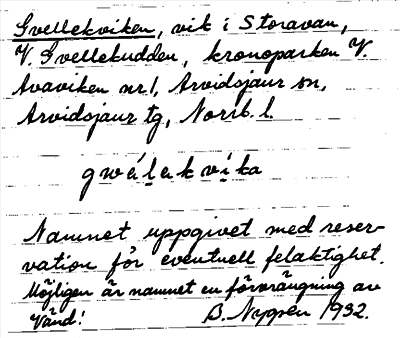 Gvellekviken, vik i Storavan,
V. Gvellekudden, kronoparken V.
Avaviken nr 1, Arvidsjaur sn,
Arvidsjaur tg, Norrb. l.
gwélekvika
Namnet uppgivet med reser-
vation för eventuell felaktighet.
Möjligen är namnet en förvrängning av
Vänd! B. Nyzén 1932.